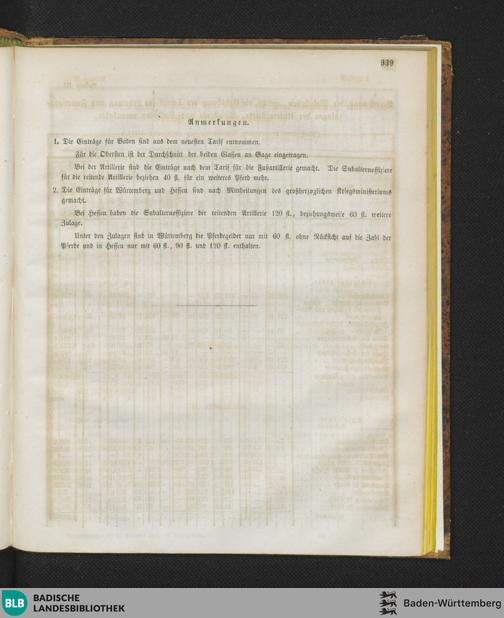 339
Anmerkungen.
1. Die Einträge für Baden sind aus dem neuesten Tarif entnommen.
Für die Obersten ist der Durchschnitt der beiden Classen an Gage eingetragen.
Bei der Artillerie sind die Einträge nach dem Tarif für die Fußartillerie gemacht. Die Subalternoffiziere
für die reitende Artillerie beziehen 40 fl. für ein weiteres Pferd mehr.
2. Die Einträge für Würtemberg und Hessen sind nach Mittheilungen des großherzoglichen Kriegsministeriums
gemacht.
Bei Hessen haben die Subalternoffiziere der reitenden Artillerie 120 fl., beziehungsweise 60 fl. weitere
Zulage.
Unter den Zulagen sind in Würtemberg die Pferdsgelder nur mit 60 fl. ohne Rücksicht auf die Zahl der
Pferde und in Hessen nur mit 60 fl., 90 fl. und 120 fl. enthalten.
BLB
BADISCHE
LANDESBIBLIOTHEK
Baden-Württemberg